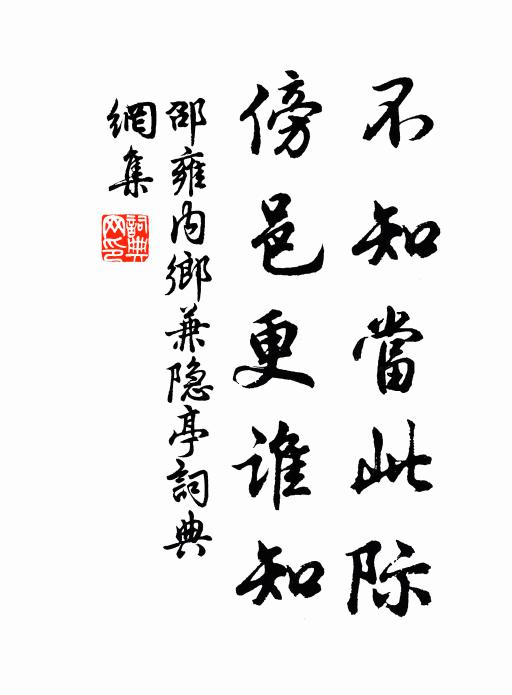 不知當此际
傍邑更谁知
邵雍内鄉兼隐亭詞典
網集
詞典
网印